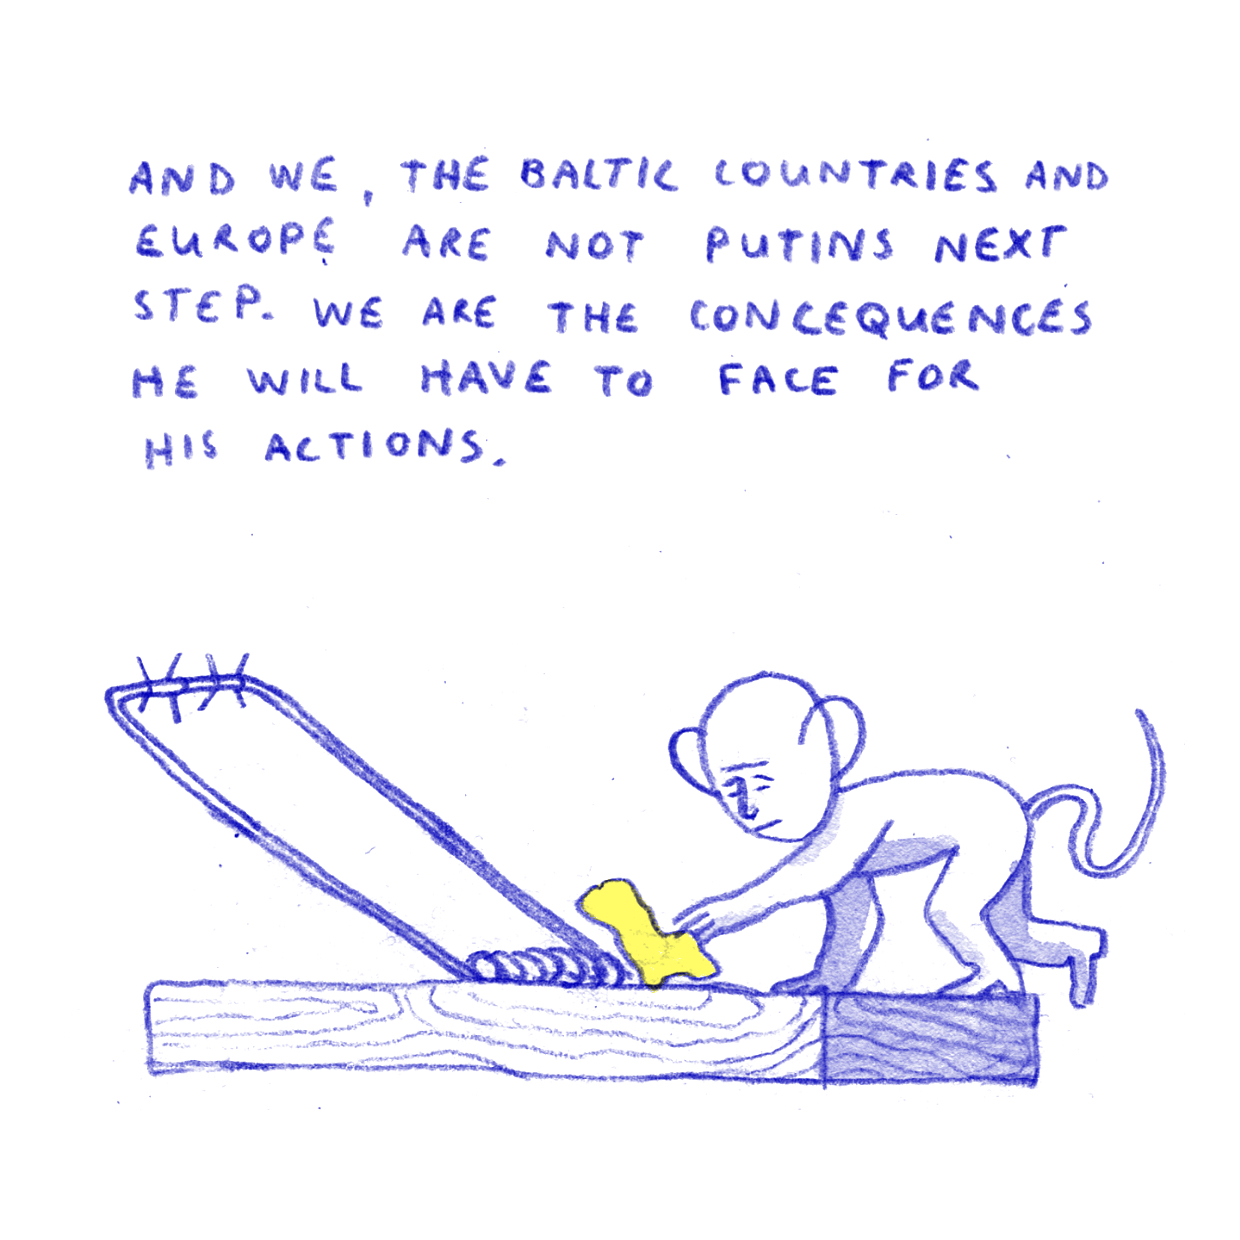 AND WE, THE BALTIC COUNTRIES AND
EUROPE ARE NOT PUTINS NEXT
STEP. WE ARE THE CONCEQUENCES
HE WILL HAVE TO FACE FOR
HIS ACTIONS.